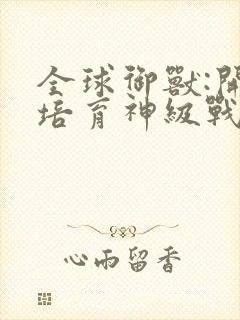 全球御獸:開
培育神級戰
心雨留香